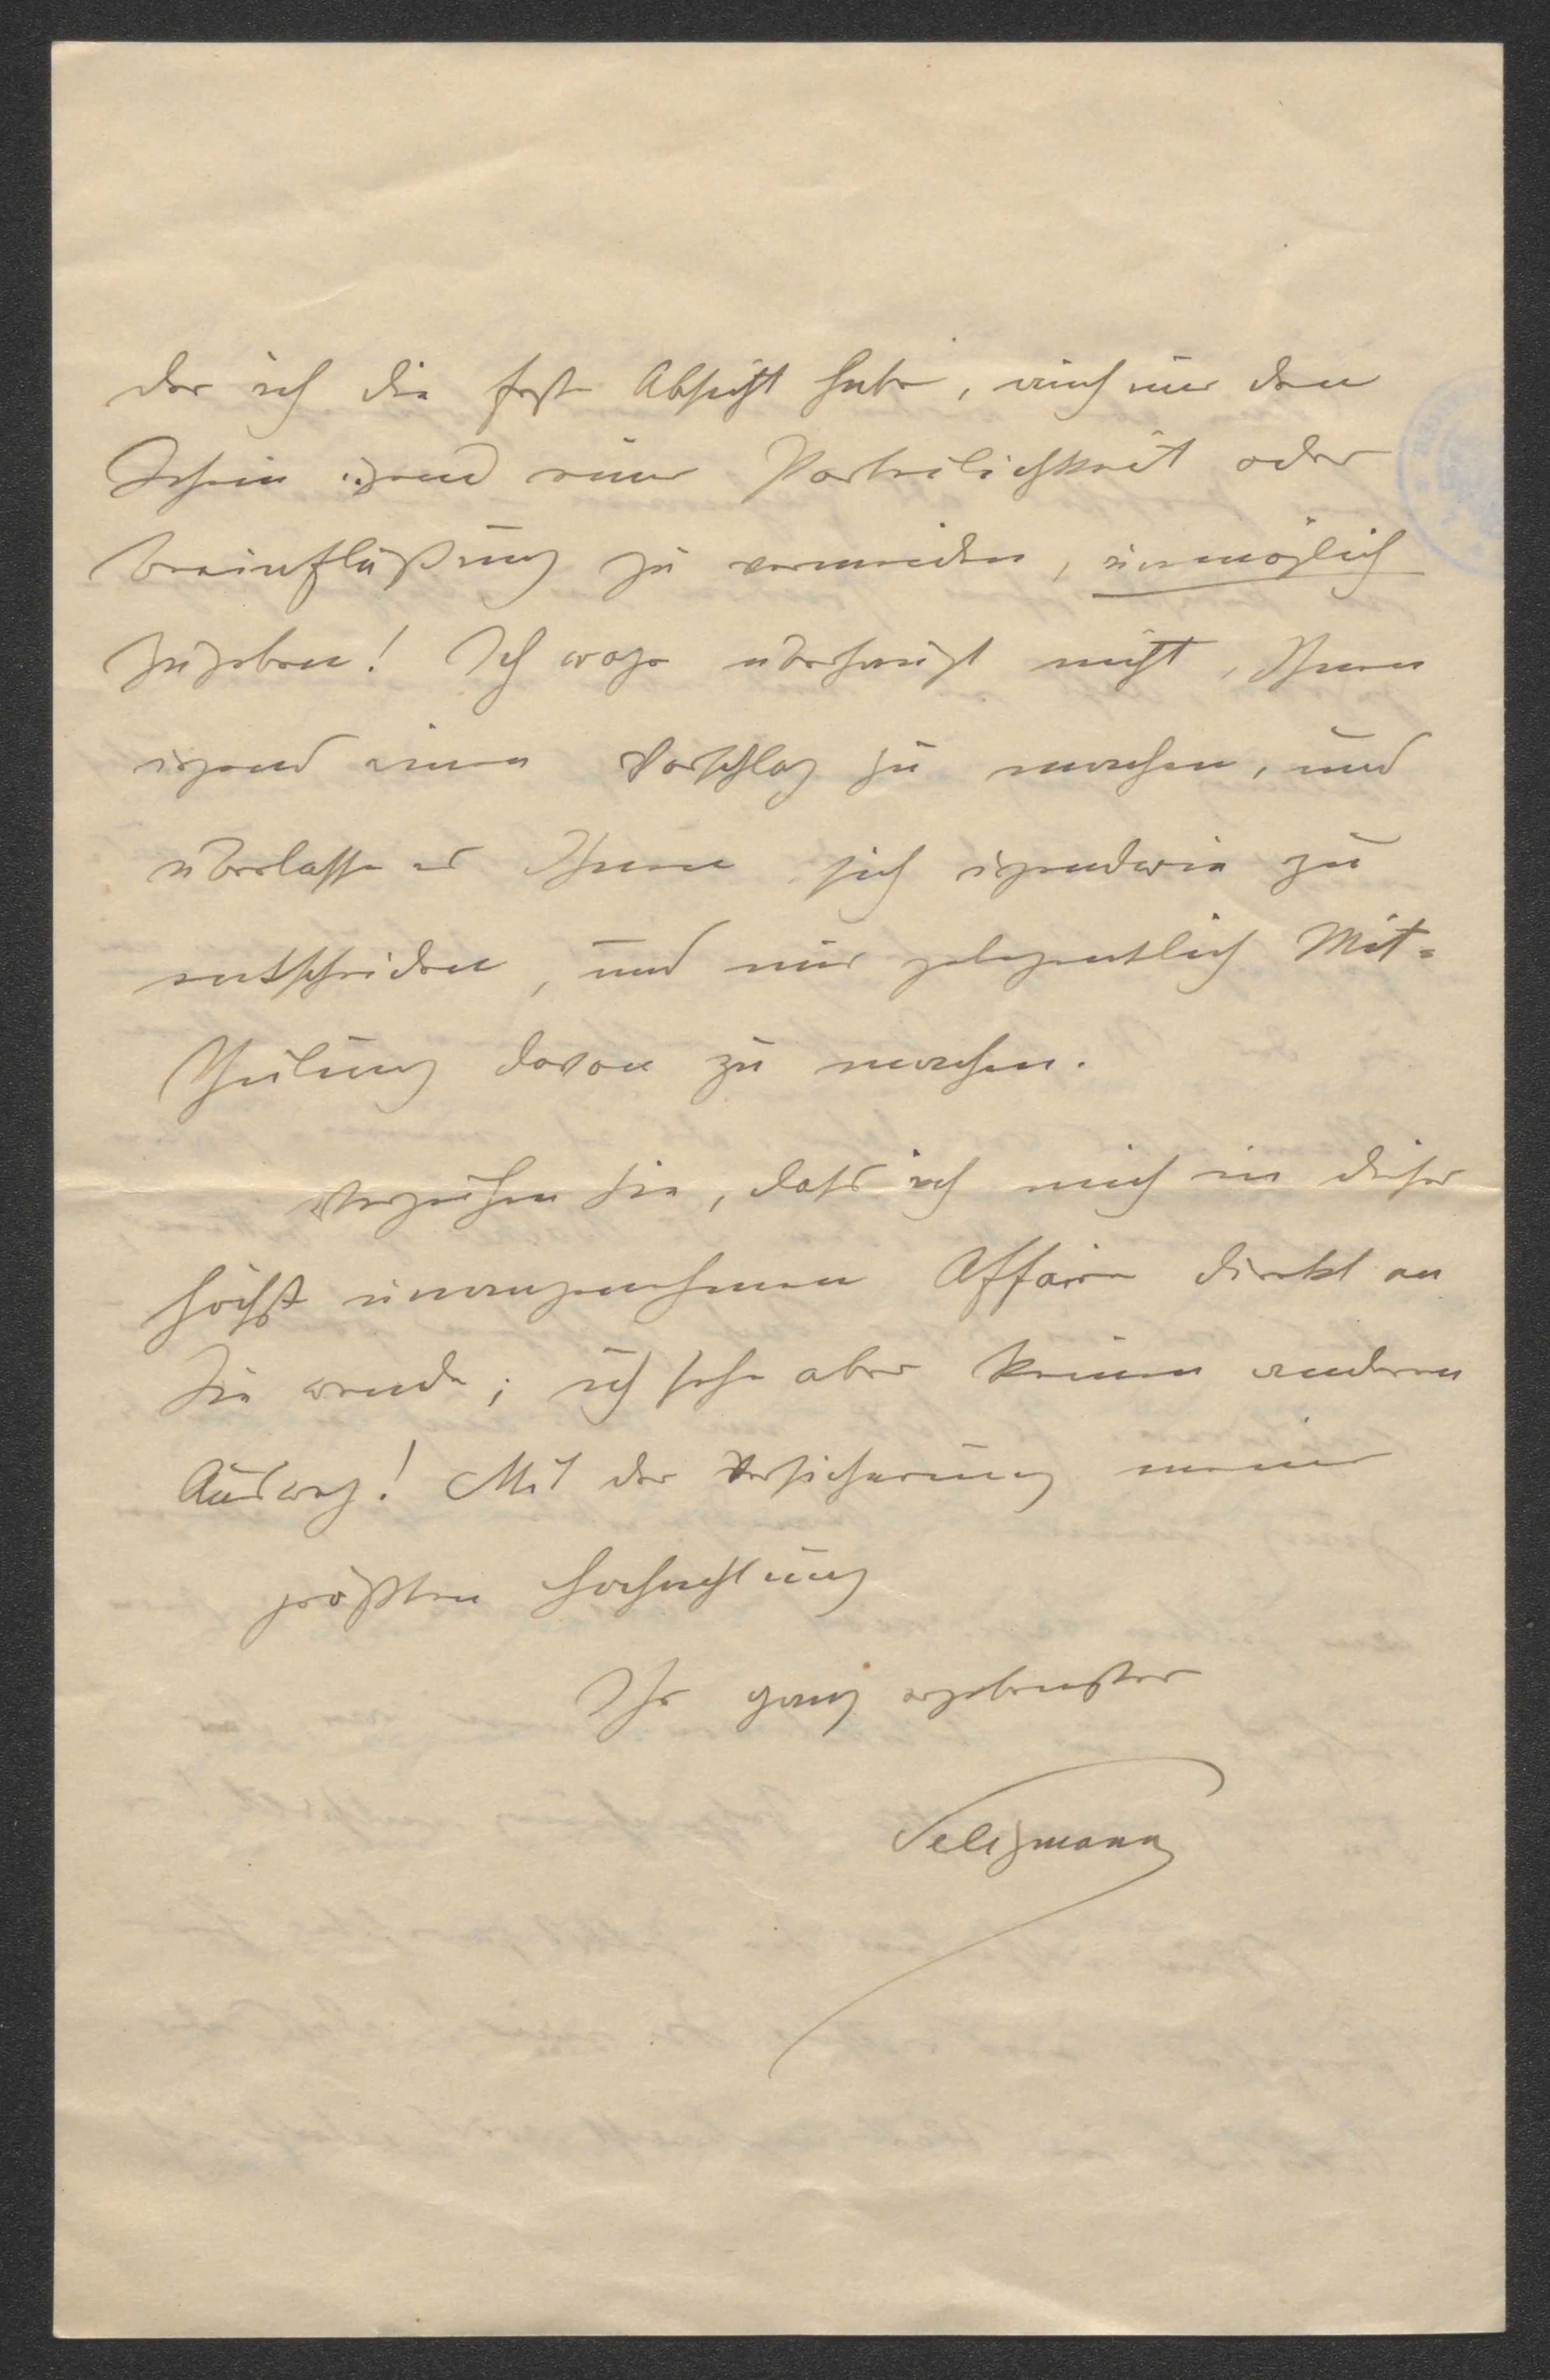 der ich die feste Absicht habe, auch nur den
Schein irgend einer Parteilichkeit oder
Beeinflußung zu vermeiden, unmöglich
zugeben! Ich wage überhaupt nicht, Ihnen
irgend einen Vorschlag zu machen, und
überlasse es Ihnen sich irgendwie zu
entscheiden, und mir gelegentlich Mit-
theilung davon zu machen.
Verzeihen Sie, daß ich mich in dieser
höchst unangenehmen Affaire direkt an
Sie wende; ich sehe aber keinen anderen
Ausweg! Mit der Versicherung meiner
größten Hochachtung
Ihr ganz ergebenster
Seligmann